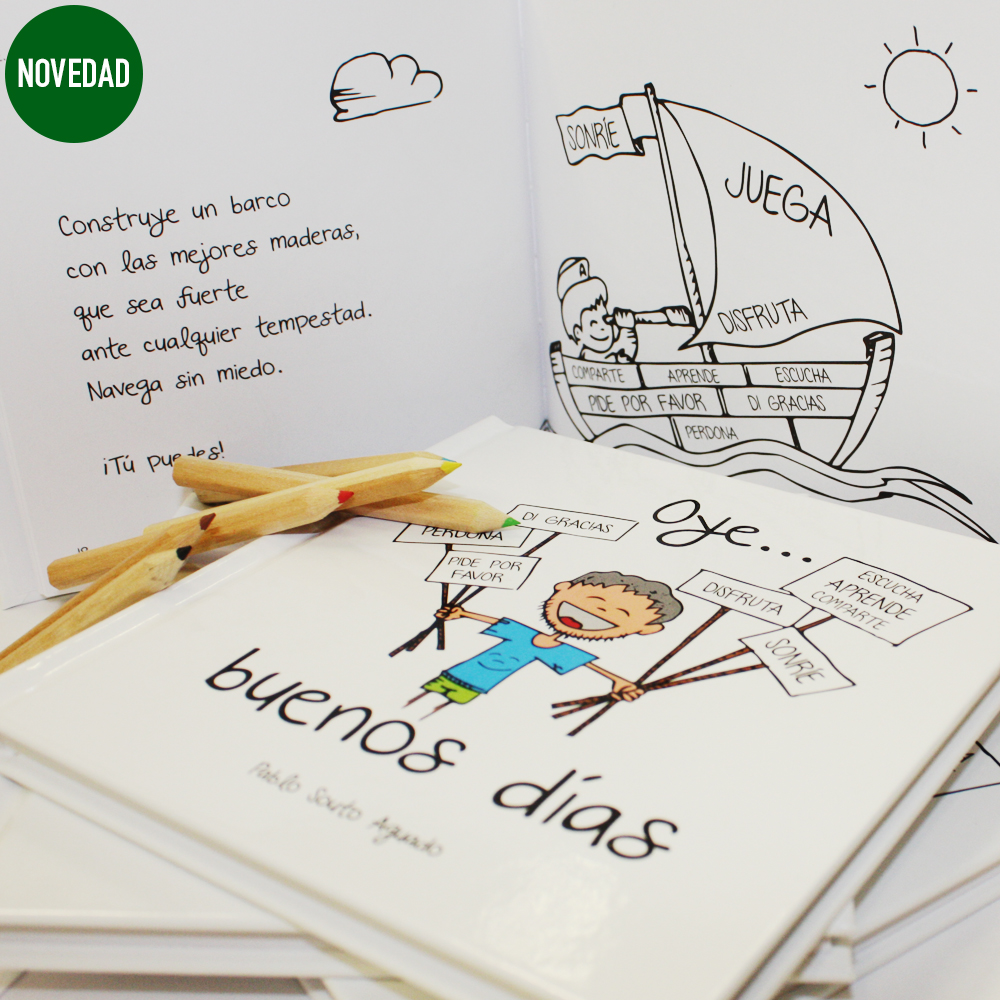 NOVEDAD
Construye un barco
con las mejores maderas,
que sea fuerte
ante cualquier tempestad.
Navega sin miedo.
¡Tú puedes!
SONRÍE
JUEGA
DISFRUTA
A
COMPARTE APRENDE ESCUCHA
PIDE POR FAVOR DI GRACIAS
PERDONA
Oye...
PERDONA
DI GRACIAS
PIDE POR
FAVOR
DISFRUTA
ESCUCHA
APRENDE
COMPARTE
SONRÍE
buenos días
Pablo Souto Aguado